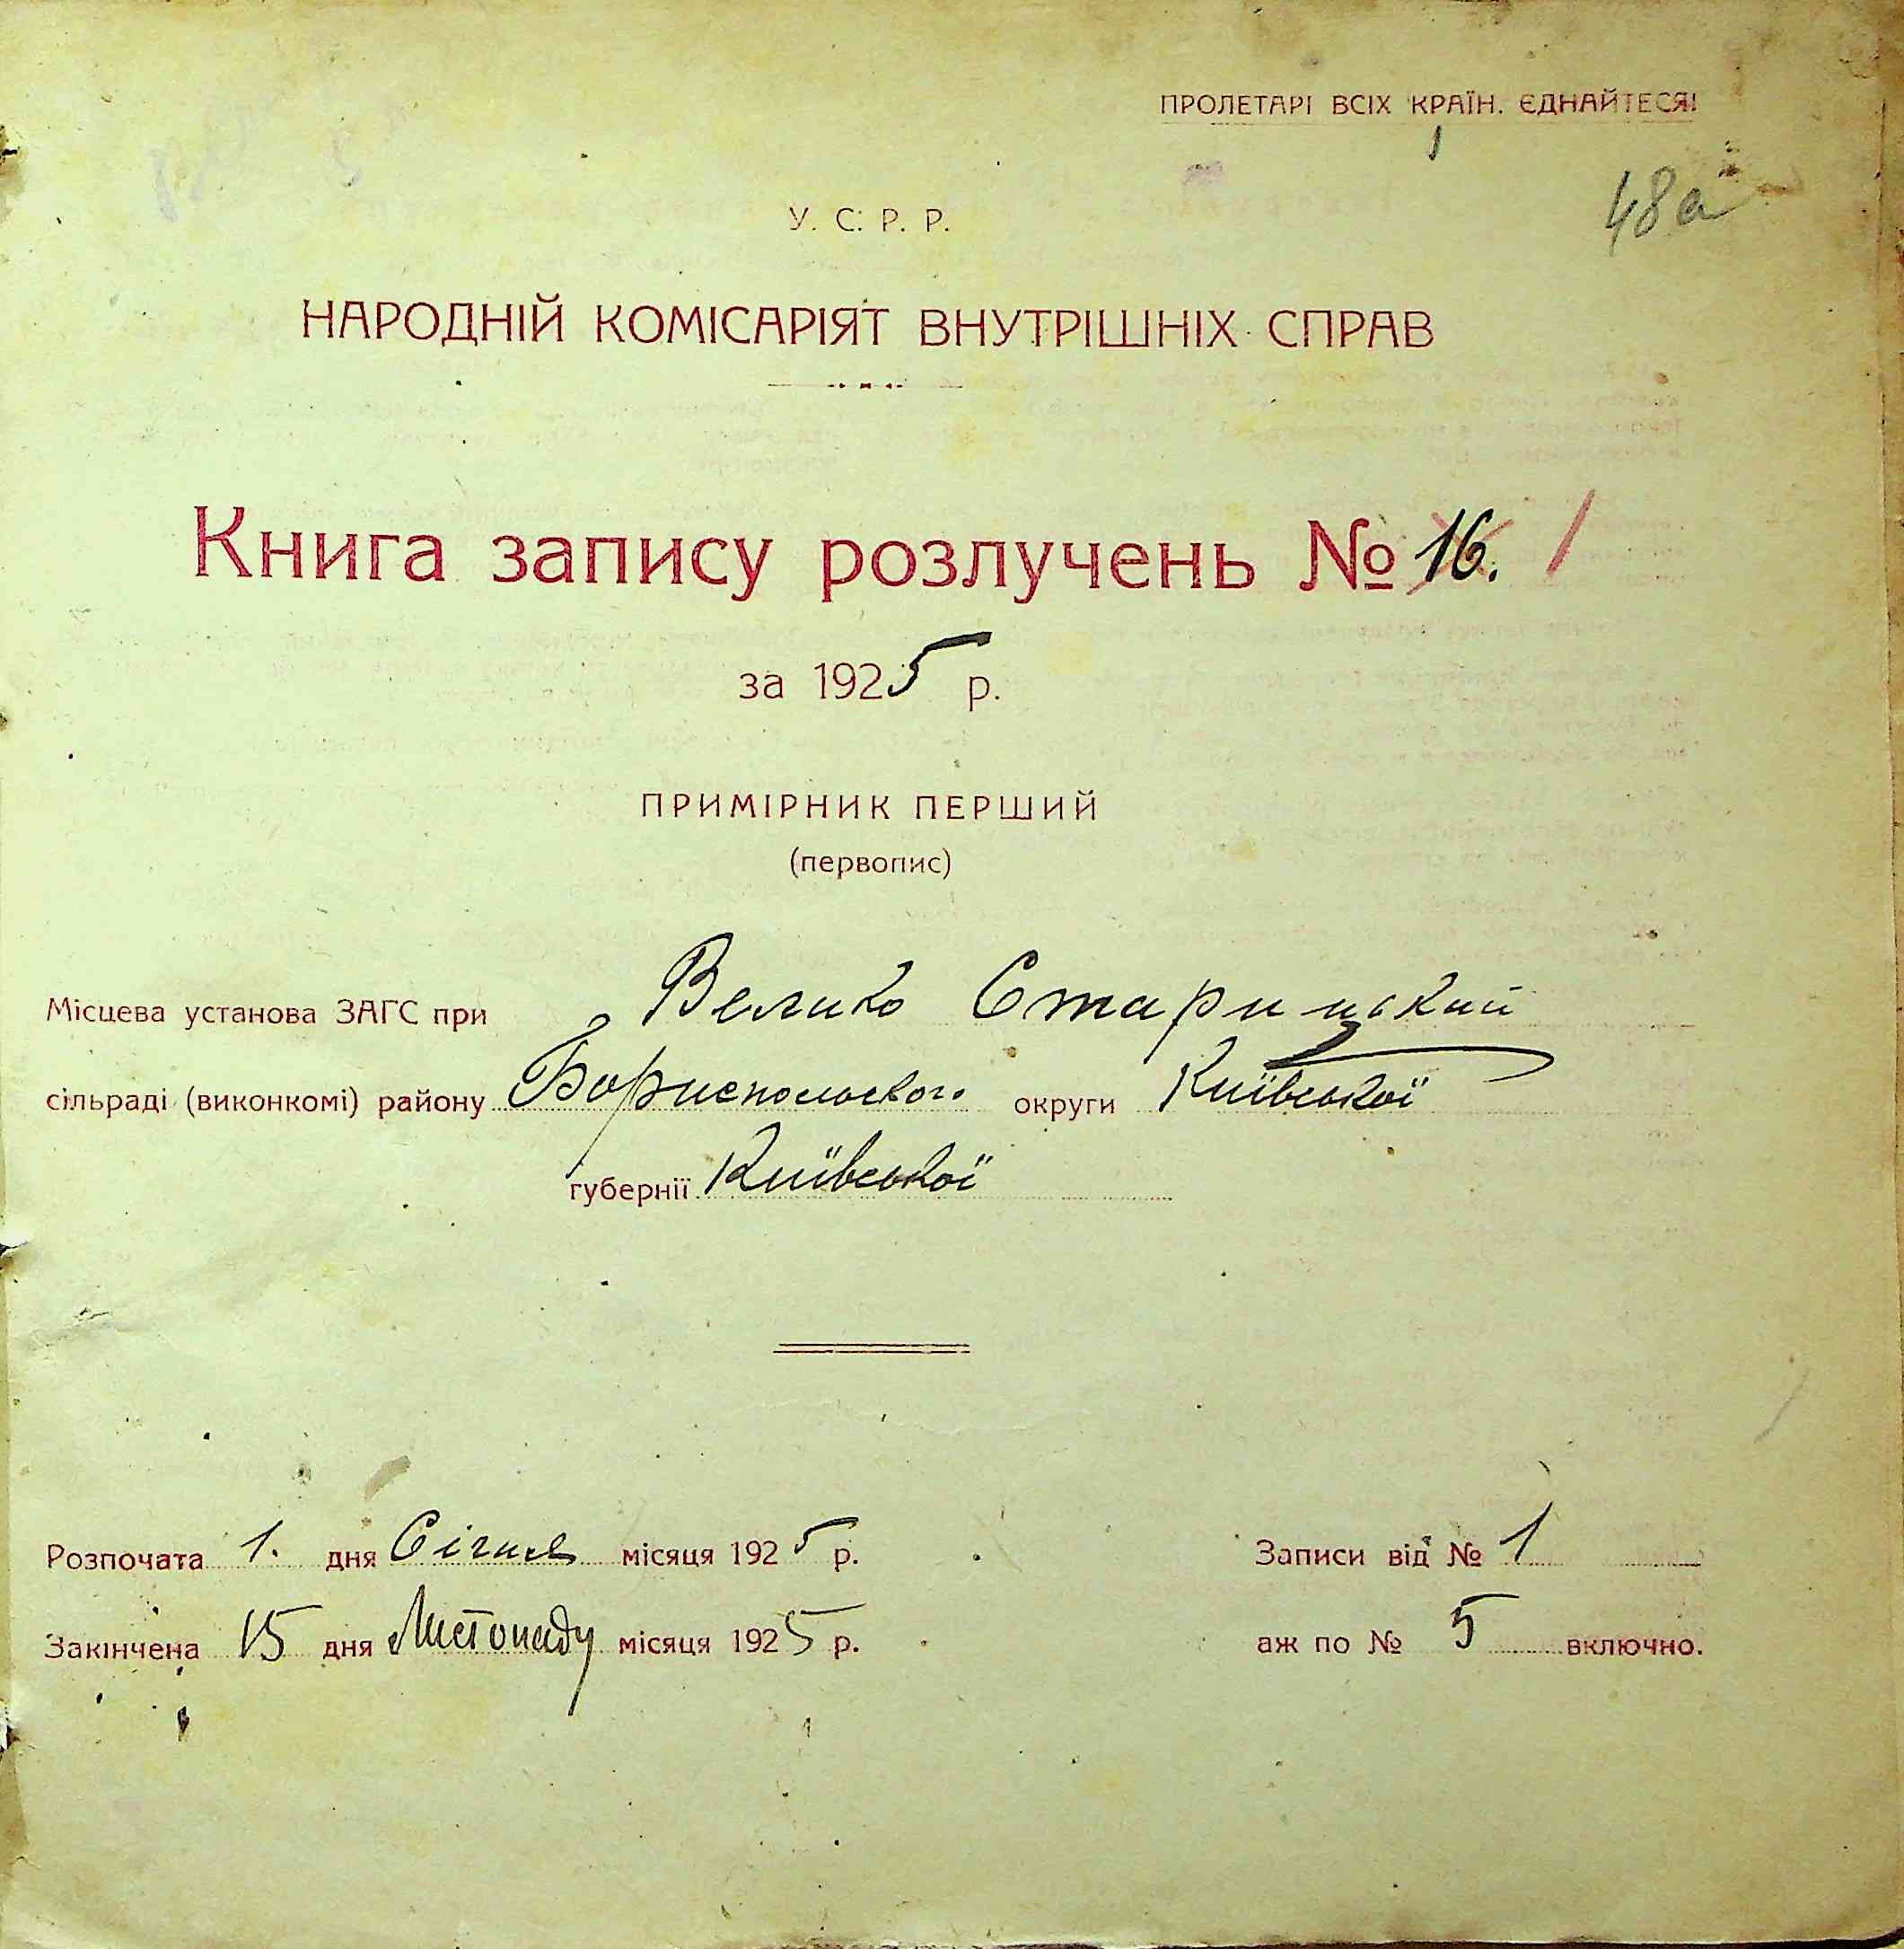 ПРОЛЕТАРІ ВСІХ КРАЇН. ЄДНАЙТЕСЯ!
48а
У. С. Р. Р.
НАРОДНІЙ КОМІСАРІЯТ ВНУТРІШНІХ СПРАВ
Книга запису розлучень № 16. 1
за 1925 р.
ПРИМІРНИК ПЕРШИЙ
(первопис)
Місцева установа ЗАГС при Велико Старицький
сільраді (виконкомі) району Бориспольського округи Київської
губернії Київської
Розпочата 1. дня Січня місяця 1925 р. Записи від № 1
Закінчена 15 дня Листопаду місяця 1925 р. аж по № 5 включно.